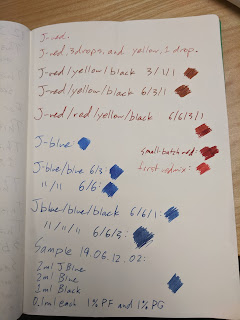 J-red.
J-red, 3 drops, and yellow, 1 drop.
J-red/yellow/black 3/1/1
J-red/yellow/black 6/3/1
J-red/red/yellow/black 6/6/3/1
small batch red:
J-blue:
first redmix:
J-blue/blue 6/3:
11/11 6/6:
Jblue/blue/black 6/6/1:
11/11/11 6/6/3:
Sample 19.06.12.02:
2ml J Blue
2ml Blue
1ml Black
0.1ml each 1% PF and 1% PG